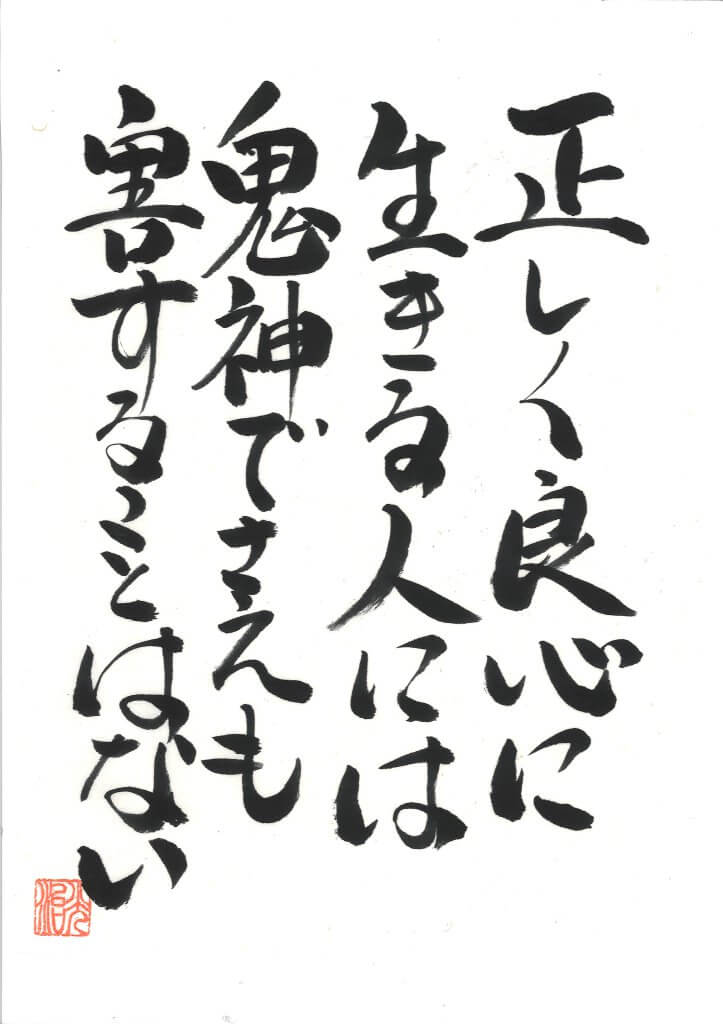 正しく良心に
生きる人には
鬼神でさえも
害することはない